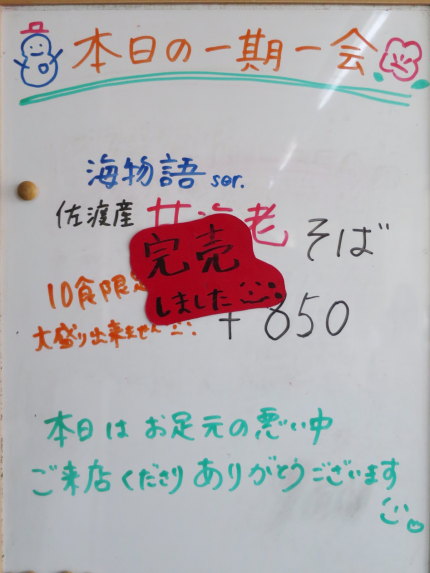 本日の一期一会
海物語 ser.
佐渡産 甘海老 そば
完売
しました
10食限定
大盛り出来ません
¥850
本日は お足元の悪い中
ご来店くださり ありがとうございます